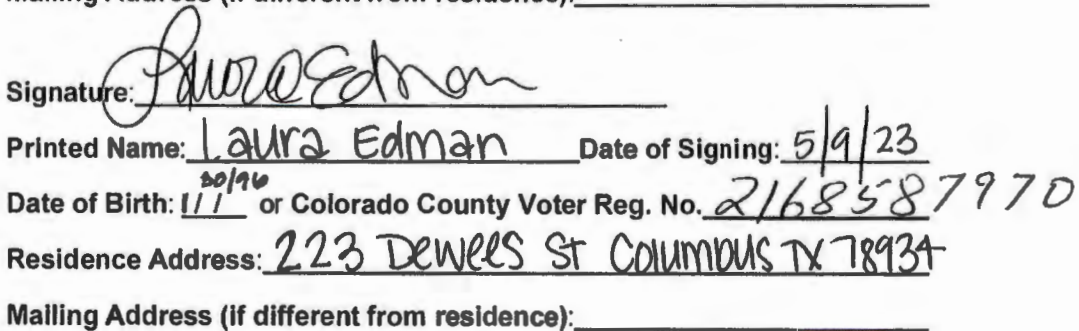 Mailing Address (if different from residence):
Signature: Laura Edman
Printed Name: Laura Edman Date of Signing: 5/9/23
Date of Birth: 11/30/96 or Colorado County Voter Reg. No. 2168587970
Residence Address: 223 Dewees St Columbus TX 78934
Mailing Address (if different from residence):